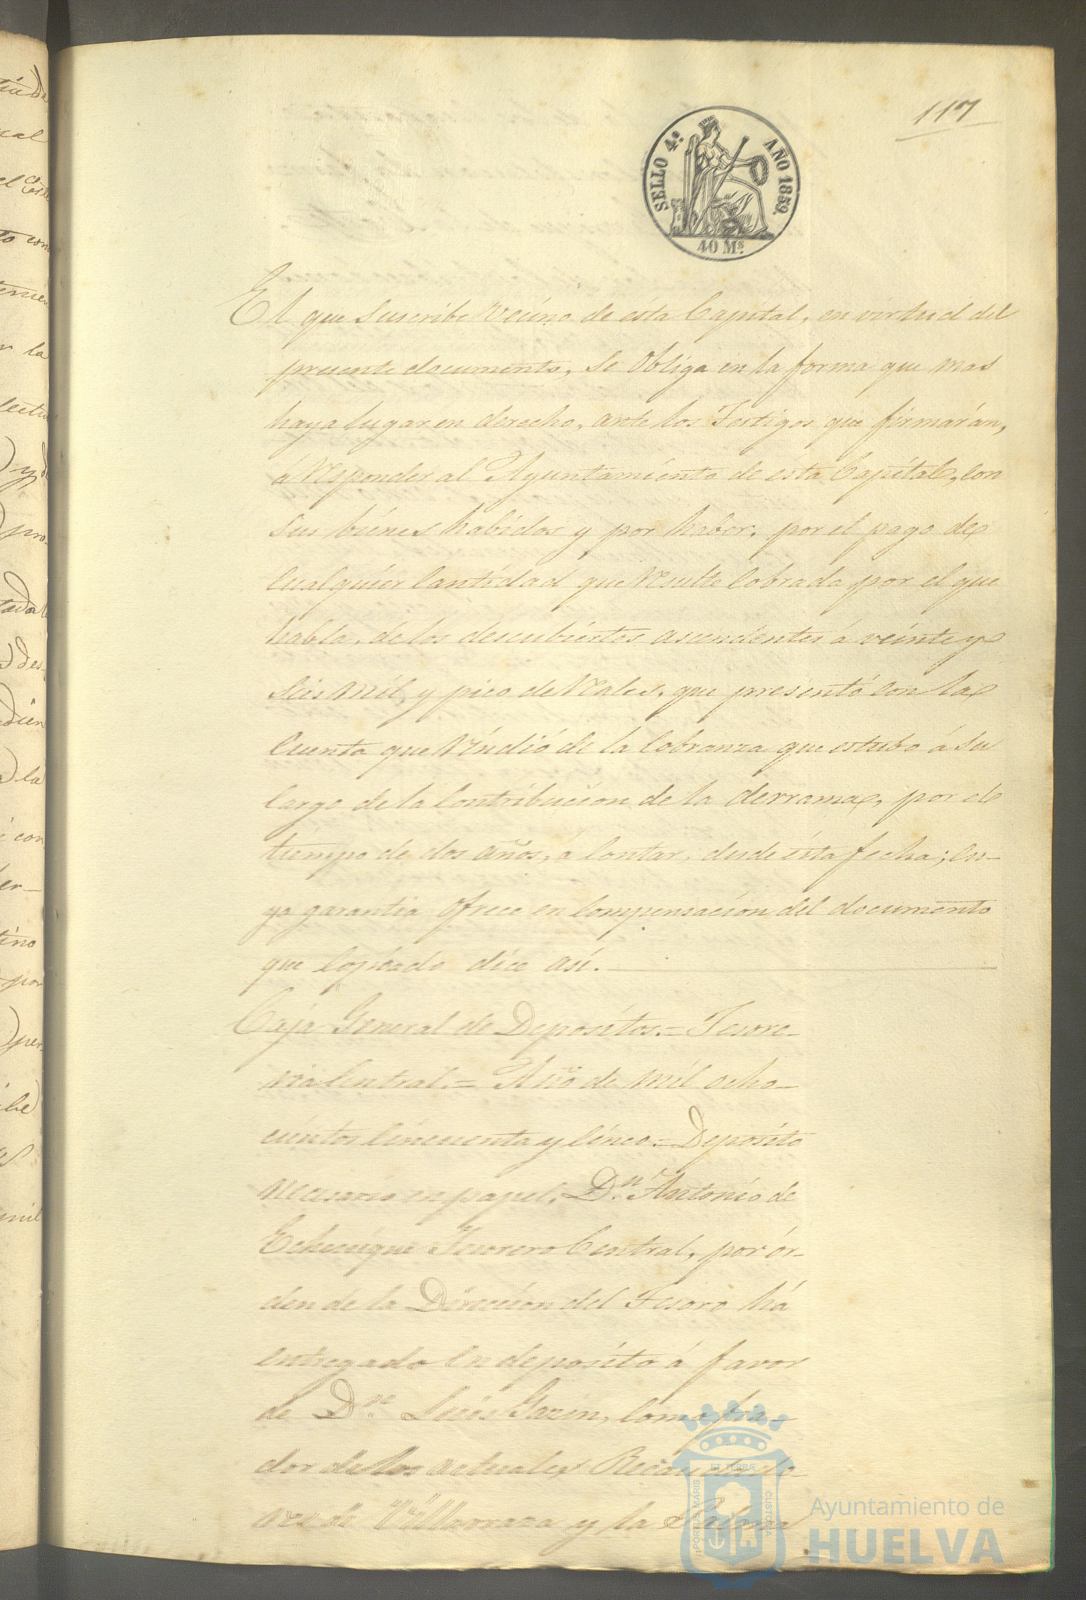 117
SELLO 4º AÑO 1859.
40 Ms.
El que suscribe vecino de ésta Capital, en virtud del
presente documento, se obliga en la forma que mas
haya lugar en derecho, ante los Testigos que firmarán,
á responder al Ayuntamiento de ésta Capital, con
sus bienes habidos y por haber, por el pago de
cualquier cantidad que resulte cobrada por el que
habla, de los descubiertos ascendentes á veinte y
seis mil y pico de reales, que presentó con la
cuenta que rindió de la cobranza que estubo á su
cargo de la Contribucion de la derrama, por el
tiempo de dos años, á contar desde ésta fecha; cu-
ya garantia ofrece en compensacion del documento
que copiado dice así.
Caja General de Depositos.= Tesore-
ria Central.= Año de mil ocho-
cientos cincuenta y cinco.= Deposito
necesario en papel. Dn. Antonio de
Echenique Tesorero Central, por ór-
den de la Direccion del Tesoro há
entregado en deposito á favor
de Dn. Luis Garin, como fia-
dor de los actuales Recaudado-
res de Villarrasa y la Palma
PORTUS MARIS ET TERRÆ CUSTODIA
Ayuntamiento de
HUELVA